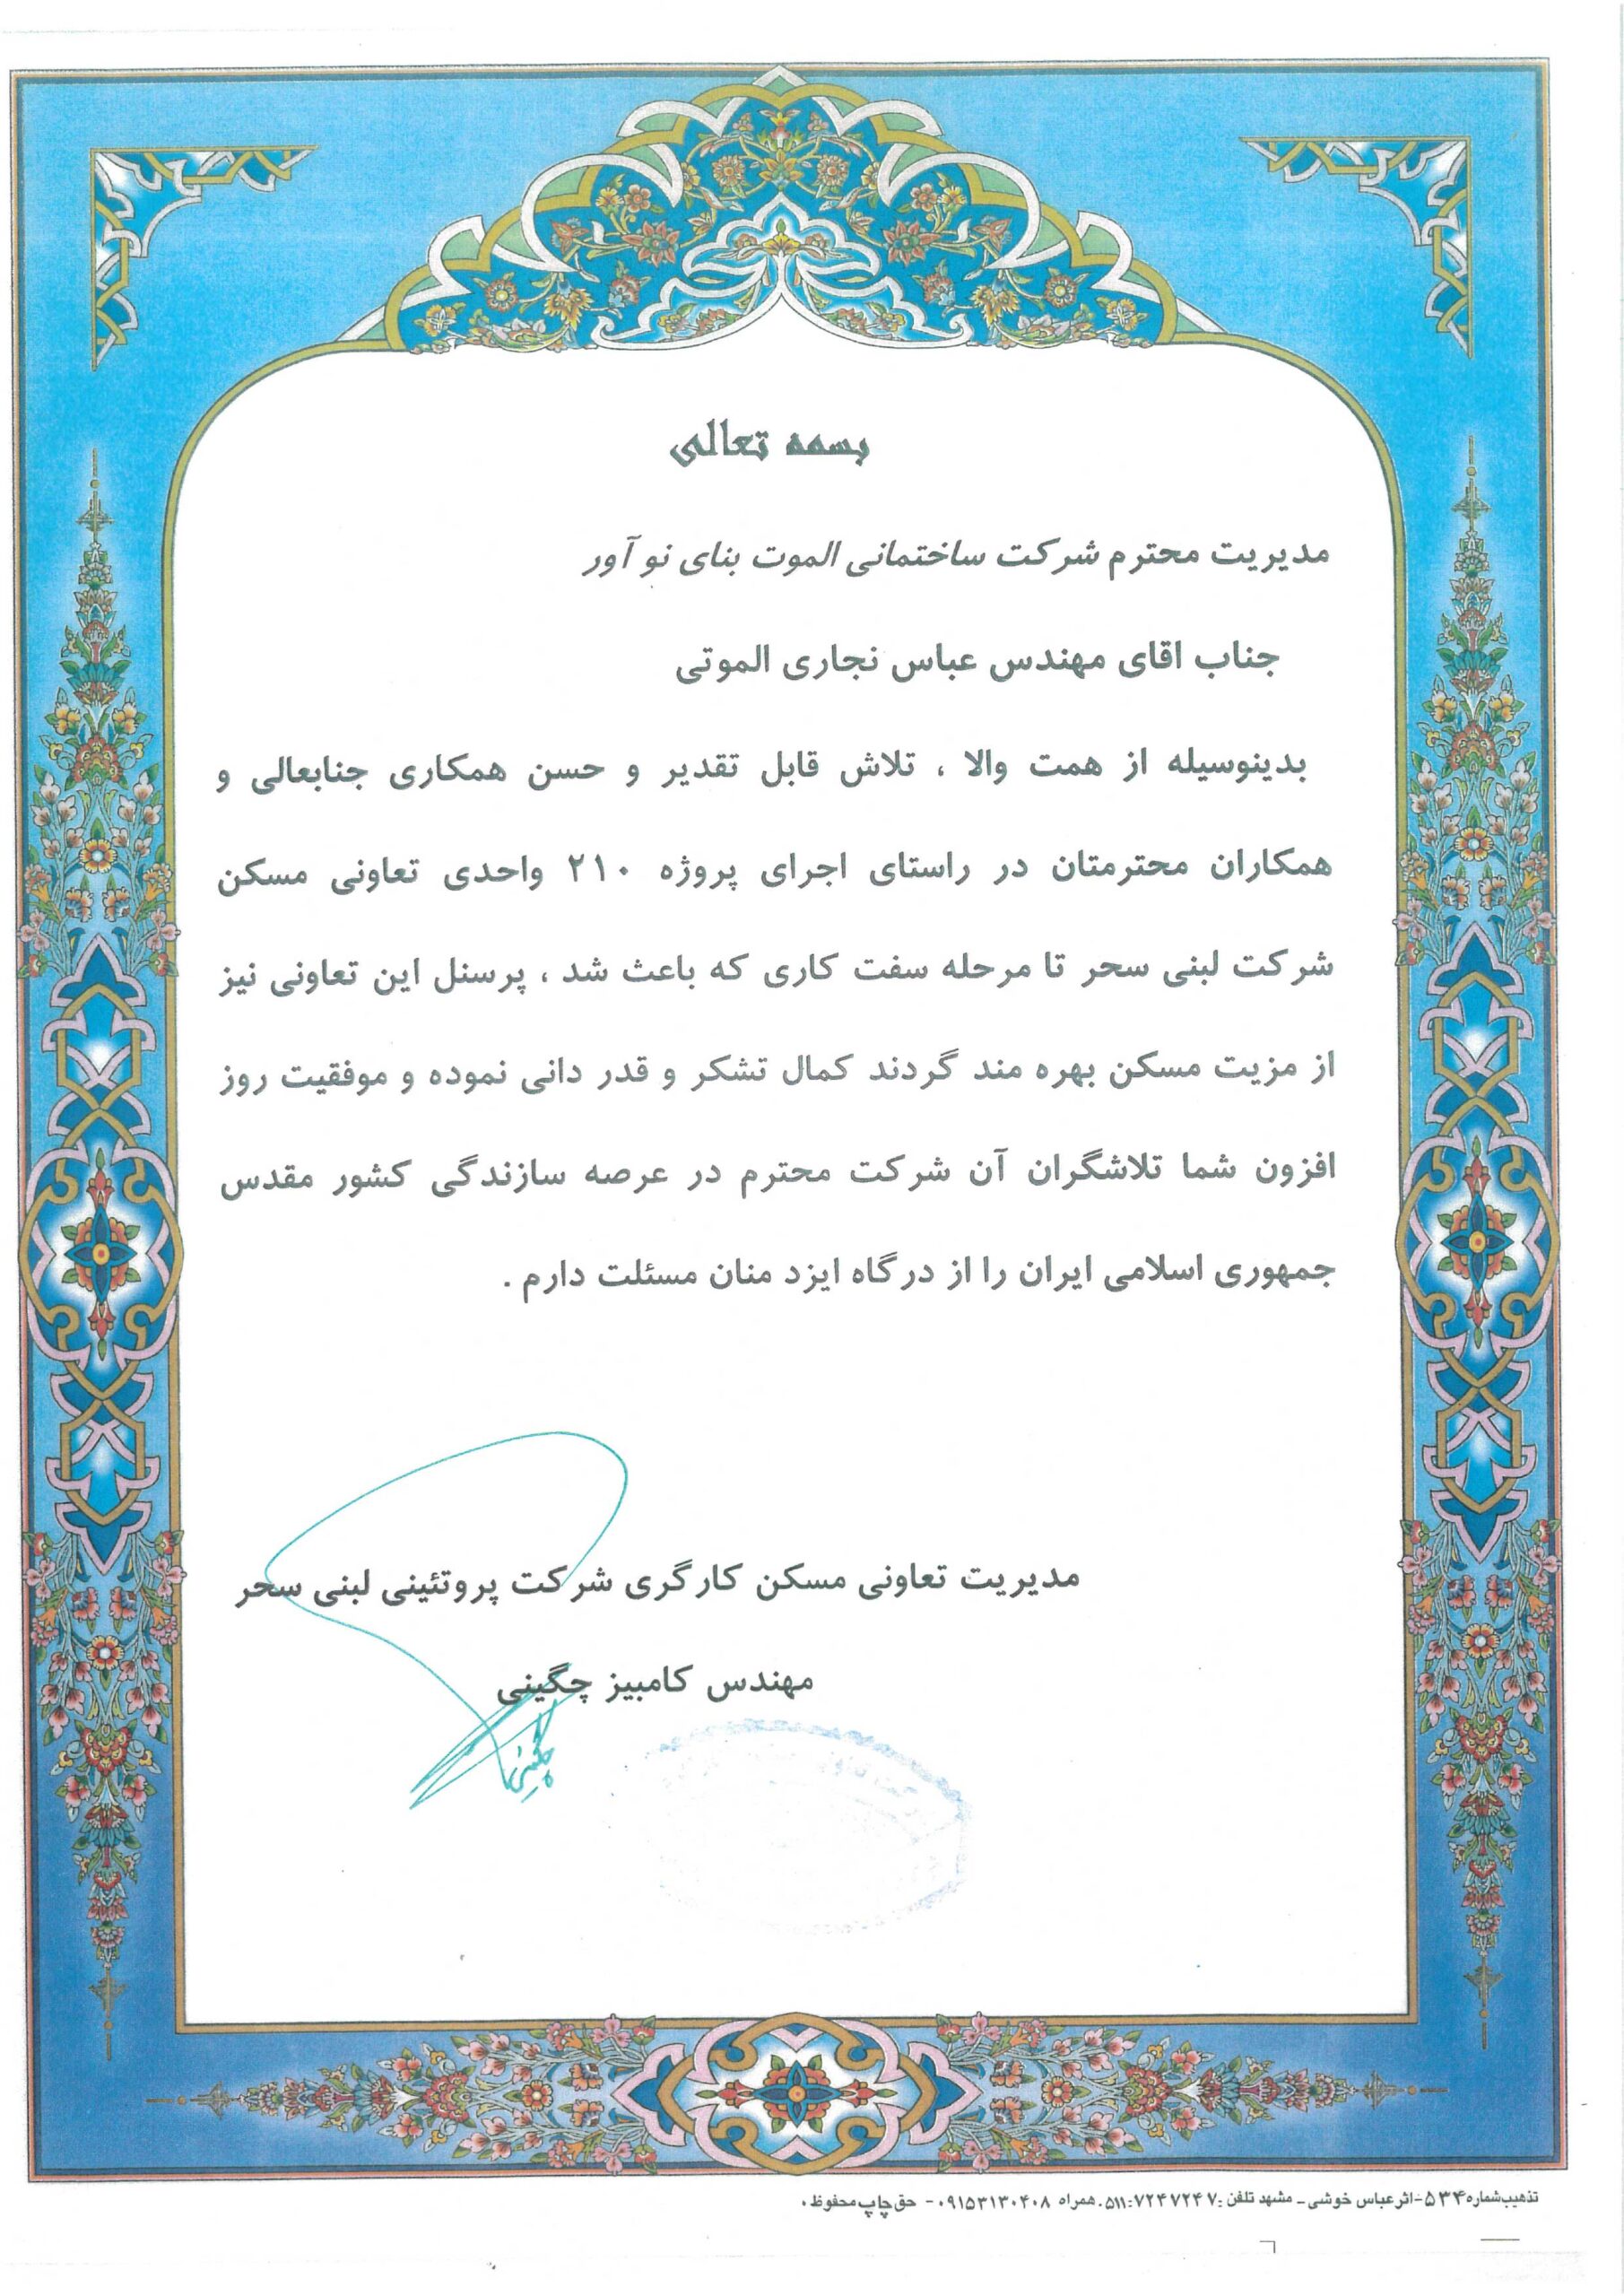 بسمه تعالی
مدیریت محترم شرکت ساختمانی الموت بنای نو آور
جناب اقای مهندس عباس نجاری الموتی
بدینوسیله از همت والا ، تلاش قابل تقدیر و حسن همکاری جنابعالی و
همکاران محترمتان در راستای اجرای پروژه ۲۱۰ واحدی تعاونی مسکن
شرکت لبنی سحر تا مرحله سفت کاری که باعث شد ، پرسنل این تعاونی نیز
از مزیت مسکن بهره مند گردند کمال تشکر و قدر دانی نموده و موفقیت روز
افزون شما تلاشگران آن شرکت محترم در عرصه سازندگی کشور مقدس
جمهوری اسلامی ایران را از درگاه ایزد منان مسئلت دارم .
مدیریت تعاونی مسکن کارگری شرکت پروتئینی لبنی سحر
مهندس کامبیز چگینی
چگینی
تذهیب شماره ۵۳۴-اثر عباس خوشی - مشهد تلفن :۷۲۴۷۲۴۷-۰۵۱۱ همراه ۰۹۱۵۳۱۳۰۴۰۸ - حق چاپ محفوظ .